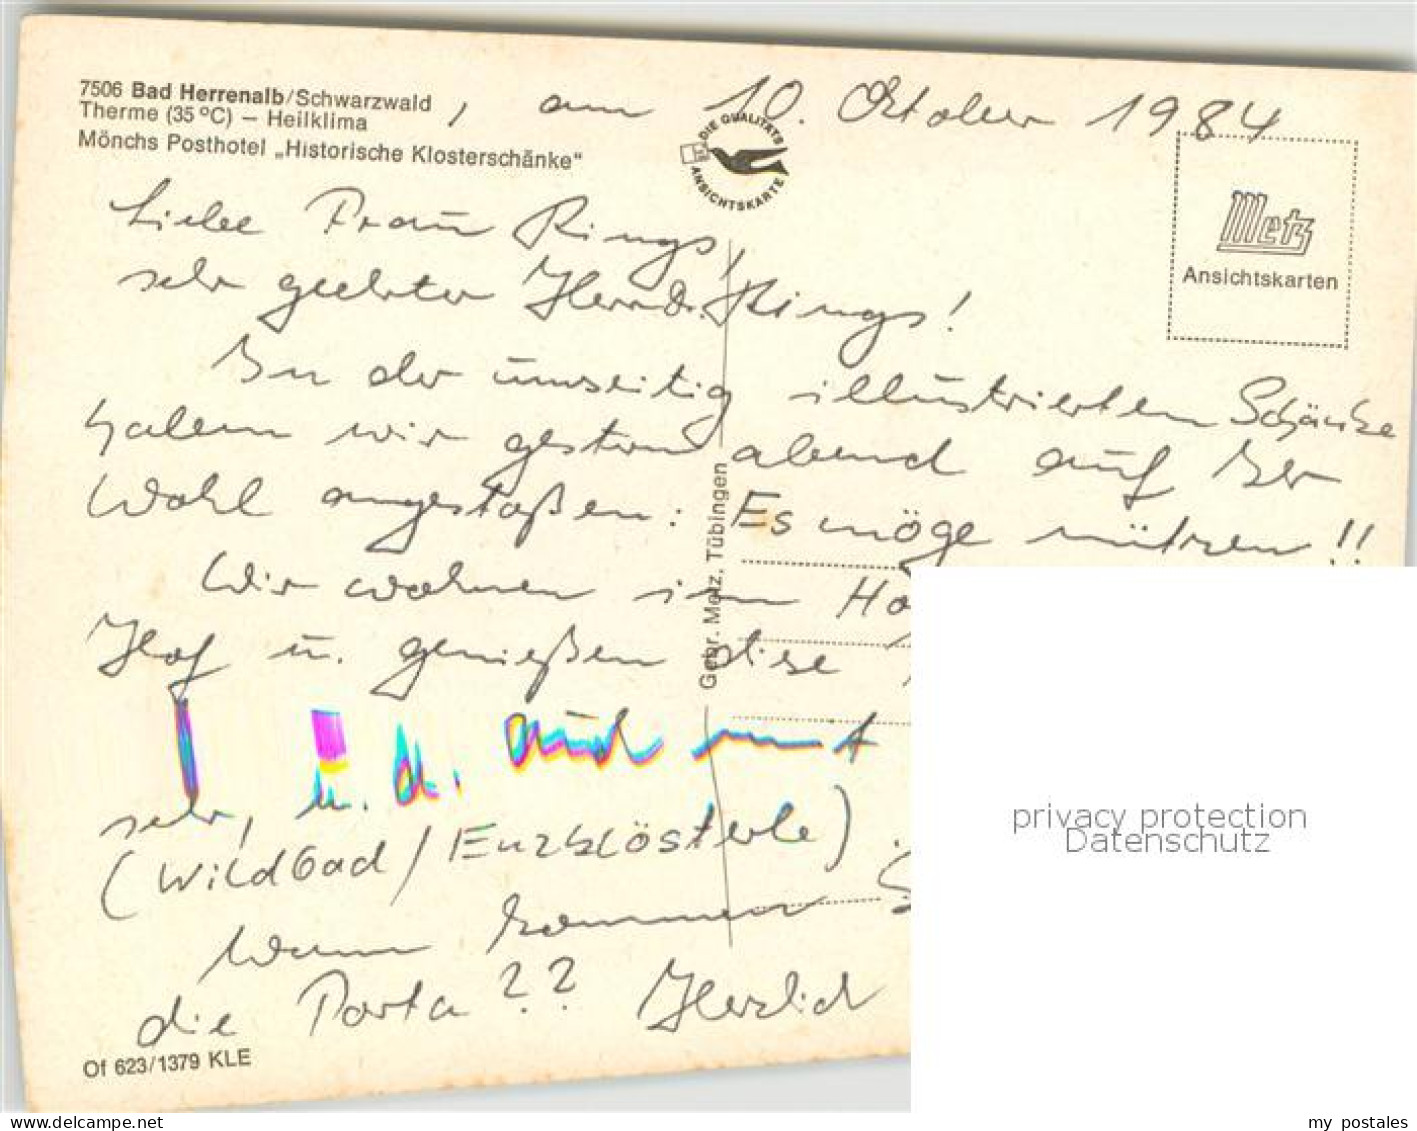 7506 Bad Herrenalb/Schwarzwald , am 10. Oktober 1984
Therme (35 °C) – Heilklima
Mönchs Posthotel „Historische Klosterschänke"
DIE QUALITÄTS
ANSICHTSKARTE
Metz
Ansichtskarten
Liebe Frau Rings,
sehr geehrter Herr Dr. Rings!
In der umseitig illustrierten Schänke
haben wir gestern abend auf Ihr
Wohl angestoßen: Es möge nützen!!
Wir wohnen im
Hof u. genießen diese
sehr, u. a. auch mit
(Wildbad/Enzklösterle).
Wann kommen
die Porta?? Herzlich
Gebr. Metz, Tübingen
Of 623/1379 KLE
privacy protection
Datenschutz
delcampe.net
my_postales